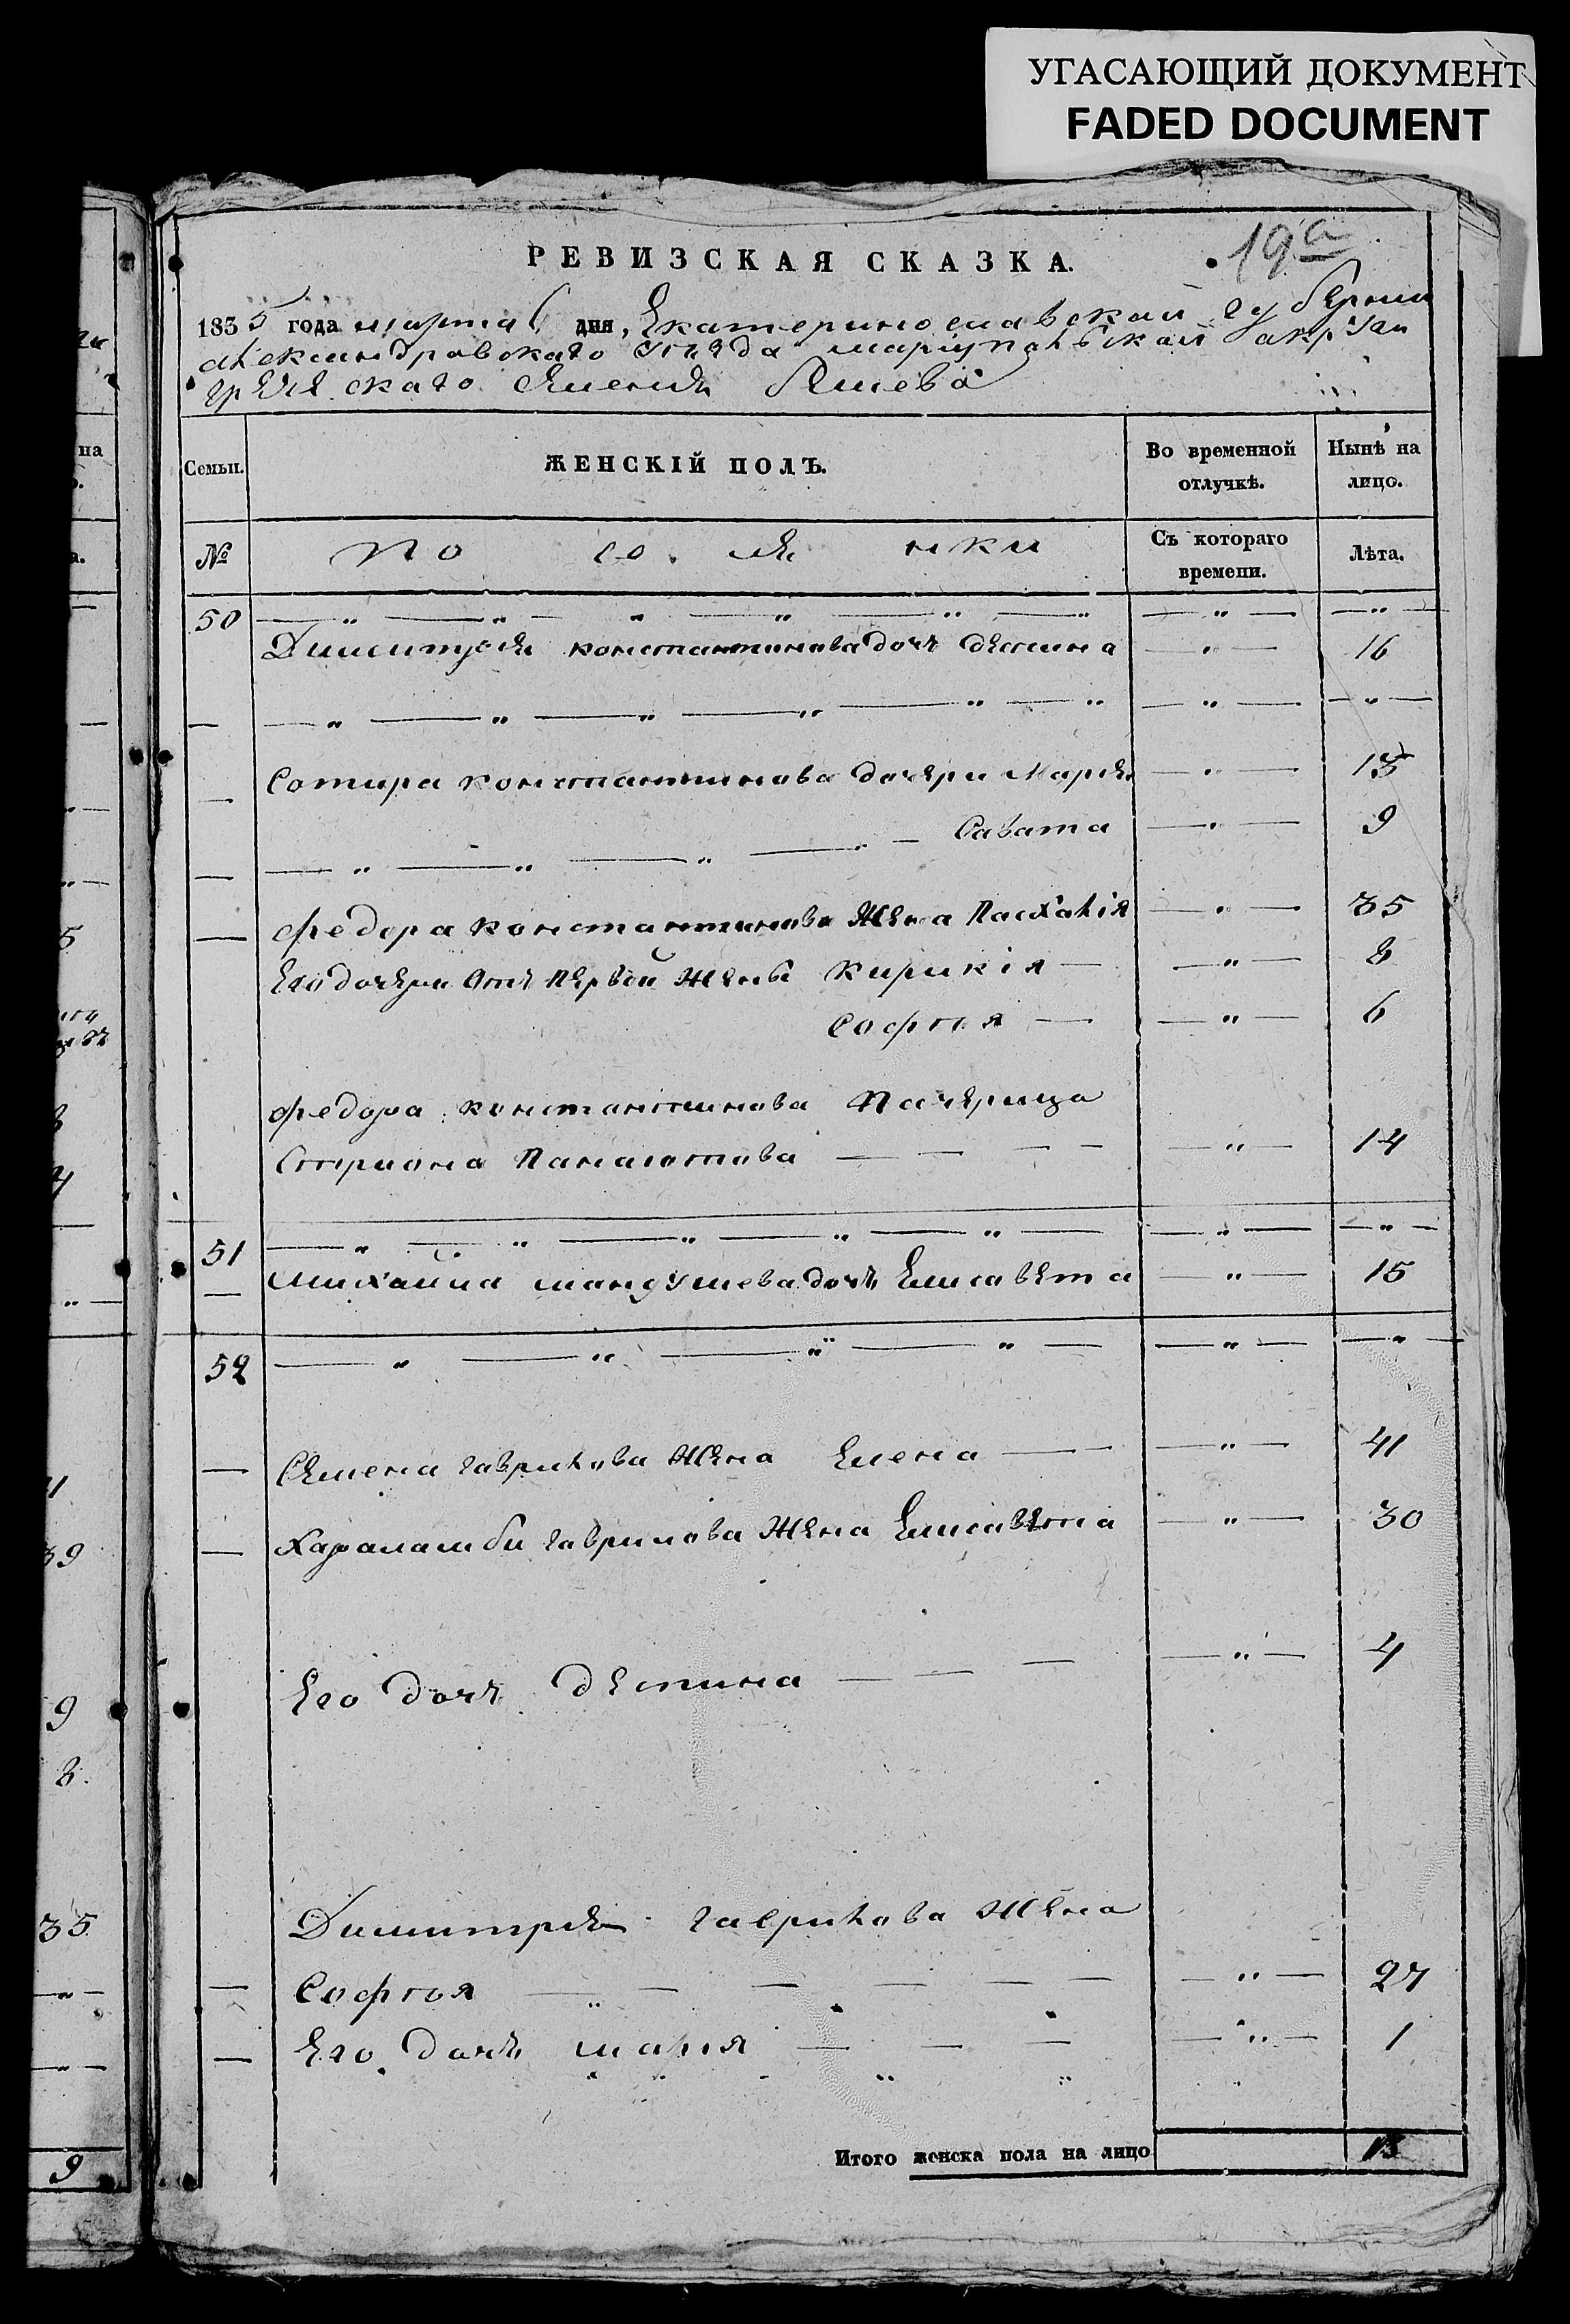 УГАСАЮЩИЙ ДОКУМЕНТ
FADED DOCUMENT
19а
РЕВИЗСКАЯ СКАЗКА.
1835 года марта дня, Екатеринославской губернии
Александровскаго уезда мариупольской
греческаго имения
Семьи. ЖЕНСКІЙ ПОЛЪ. Во временной отлучкѣ. Нынѣ на лицо.
№ Съ котораго времени. Лѣта.
50
константинова дочь 16
Сотира константинова дочери Марія 13
Савата 9
федора константинова жена Пасхалія 35
Его дочери отъ первой жены Кирикія 8
Софія 6
федора константинова Падчерица
Стриона Панаіотова 14
51
михайла дочь Елисавета 15
52
Семена гаврилова жена Елена 41
Хараламби гаврилова жена Елисавета 30
Его дочь деспина 4
Димитрія гаврилова жена
Софія 27
Его дочь марія 1
Итого женска пола на лицо 13
на
35
9